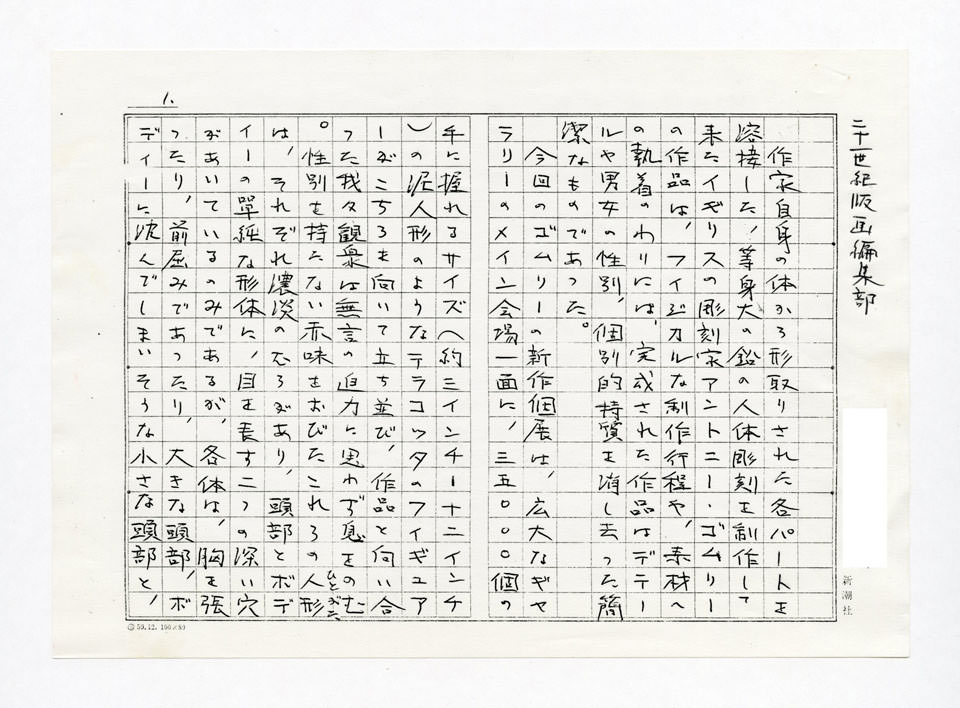 1.
二十一世紀版画編集部
作家自身の体から形取りされた各パートを
溶接した、等身大の鉛の人体彫刻を制作して
来たイギリスの彫刻家アントニー・ゴムリー
の作品は、フィジカルな制作行程や、素材へ
の執着のわりには、完成された作品はデテー
ルや男女の性別、個別的特質を消し去った簡
潔なものであった。
今回のゴムリーの新作個展は、広大なギャ
ラリーのメイン会場一面に、三五〇〇〇個の
手に握れるサイズへ約三インチー十二インチ
)の泥人形のようなテラコッタのフィギュア
ーがこちらを向いて立ち並び、作品と向い合
った我々観衆は無言の迫力に思わず息をのむ
。性別を持たない赤味をおびたこれらの人形
ひとがた
は、それぞれ濃淡のむらがあり、頭部とボデ
ィーの単純な形体に、目を表す二つの深い穴
があいているのみであるが、各体は、胸を張
ったり、前屈みであったり、大きな頭部、ボ
ディーに沈んでしまいそうな小さな頭部と、
新潮社
59.12. 100×80